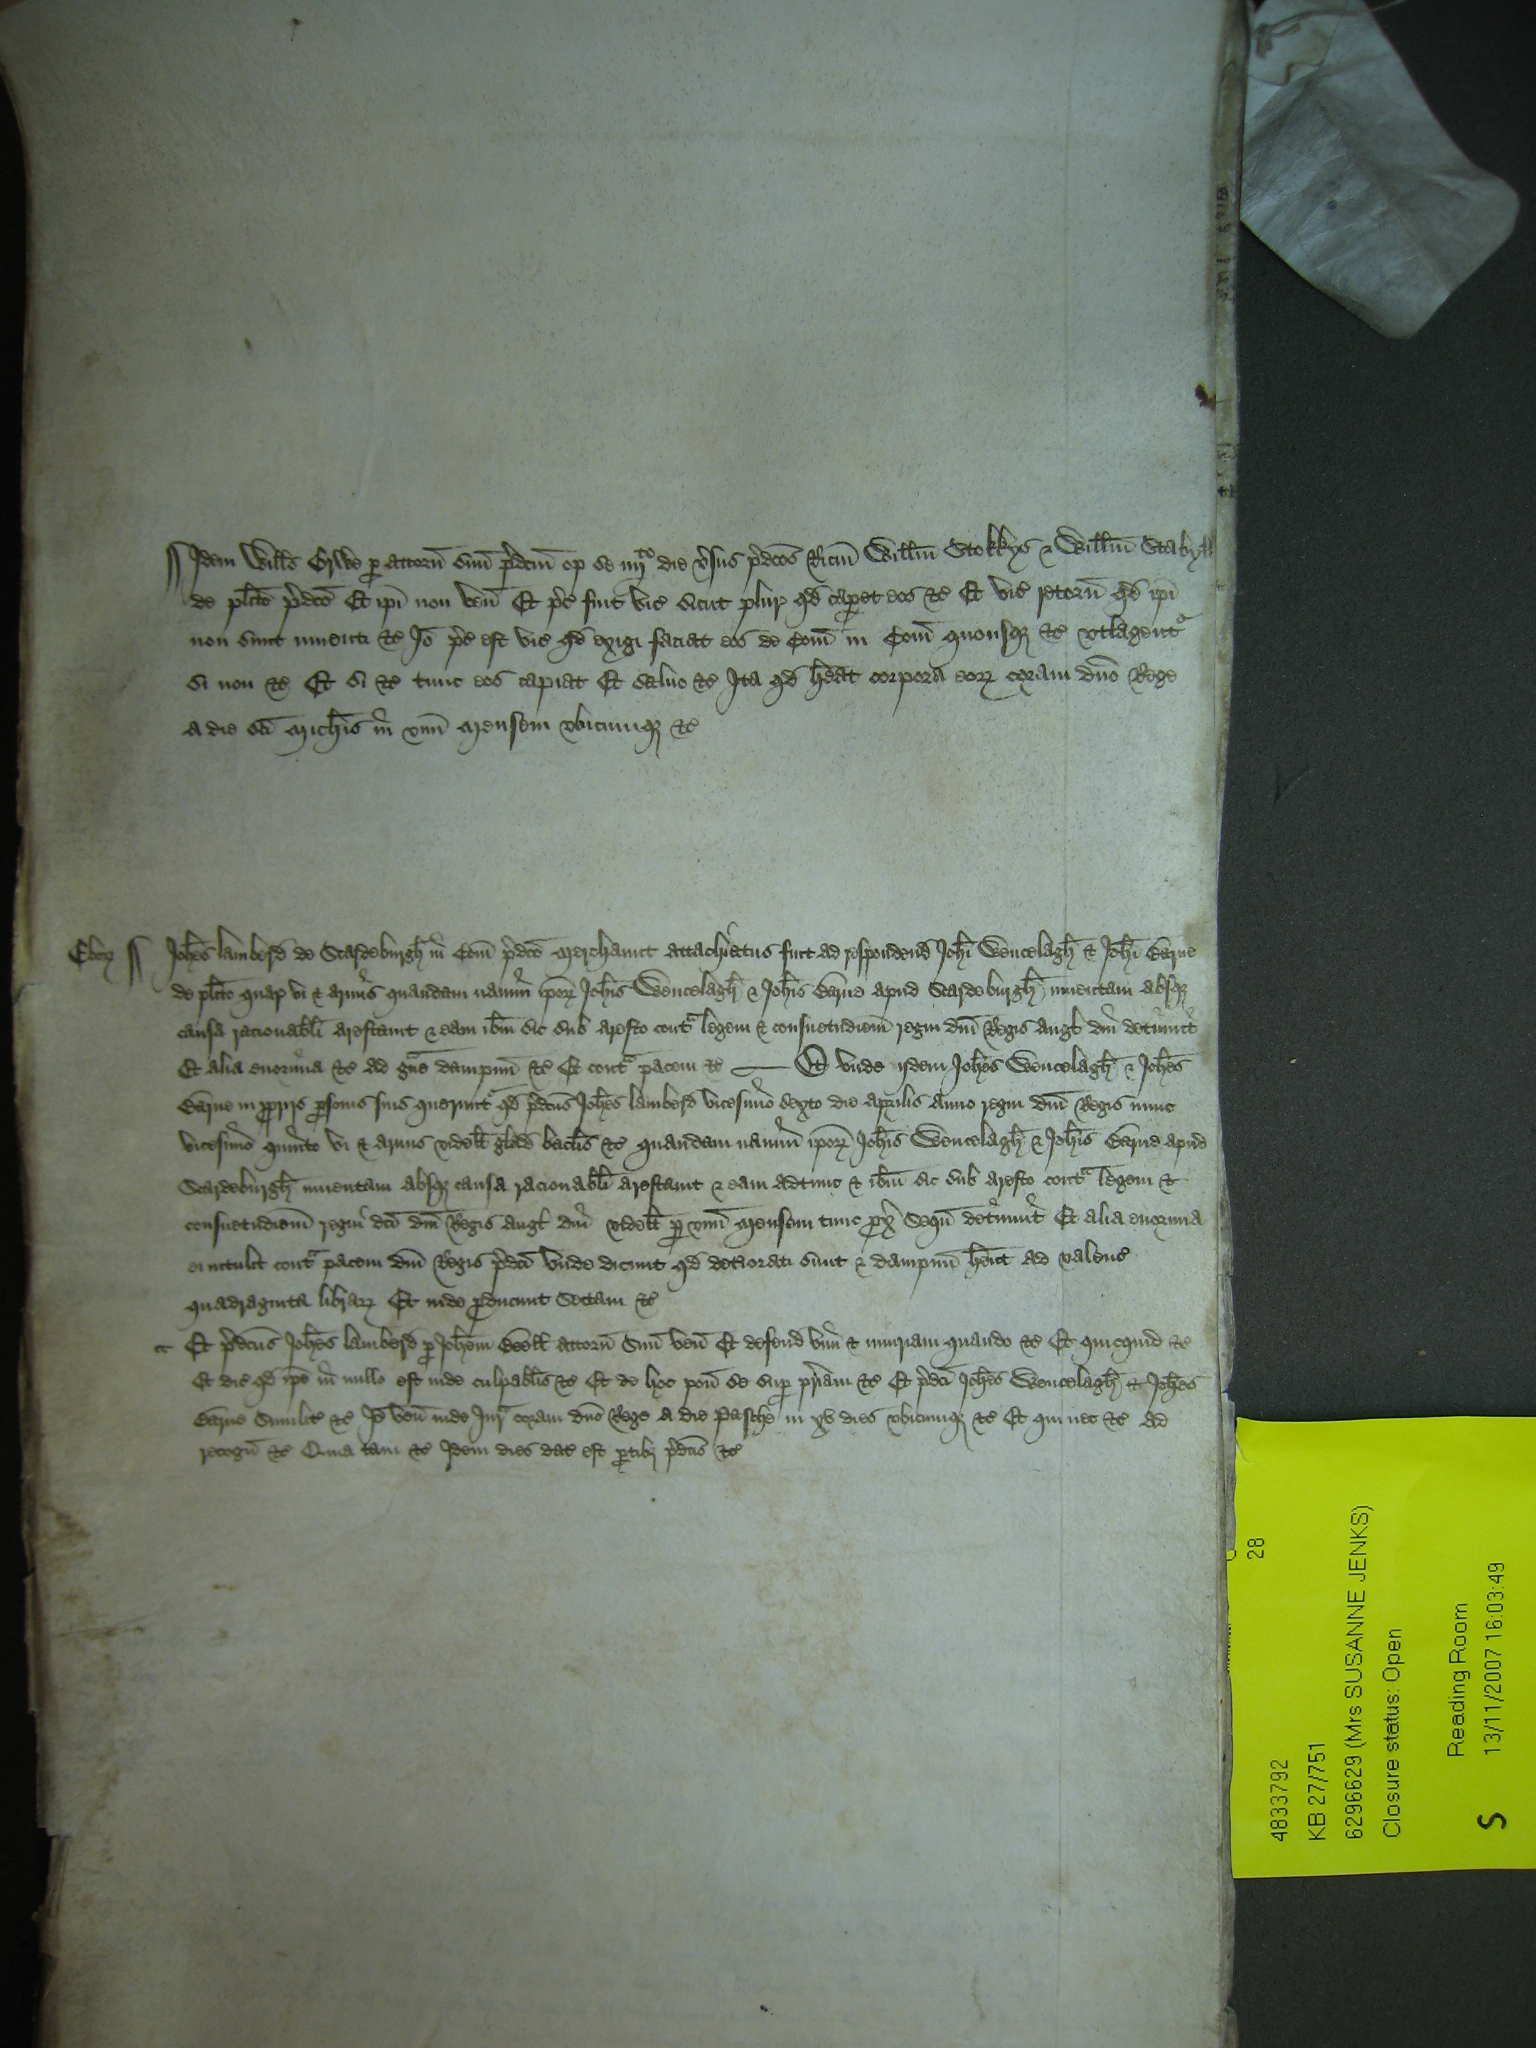 Idem Willūs Grke p attorñ suū p̃dcm̄ op se iiijto die v̓sus p̃dcos Ricm̄ Willm̄ Stokkys & Willm̄
de pltō p̃dcō Et ip̄i non ven̄ Et p̃c fuit vic̄ sicut plur̄ qd cap̱et eos &c̄ Et vic̄ retorñ qd ip̄i
non sunt inventi &c̄ Iō p̃c est vic̄ qd exigi faciat eos de Com̄ in Com̄ quousqȝ &c̄ vtlagent᷑
si non &c̄ Et si &c̄ tunc eos capiat Et salvo &c̄ Ita qd h̄eat corpora eoȝ coram dn̄o Rege
a die sc̄i Mich̄is in vnū Mensem vbicumqȝ &c̄
Eboȝ Joh̄es lamberd de Scardeburgh̄ in Com̄ p̃dcō Merchaunt attachiatus fuit ad respondend Joh̄i Wencelagh̄ & Joh̄i
de pltō quar̄ vi & armis quandam navim̄ ip̄oȝ Joh̄is Wencelagh̄ & Joh̄is apud Scardeburgh̄ inventam absqȝ
causa racionabili arestavit & eam ib̄m sic sub aresto cont᷑ legem & consuetudiem̄ regni dn̄i Regis Angl̄ diu detinuit
Et alia enormia &c̄ ad g᷑ve dampnū &c̄ Et cont᷑ pacem &c̄ Et vnde ijdem Joh̄es Wencelagh̄ & Joh̄es
in p̱prijs p̱sonis suis querunt᷑ qd p̃dcūs Joh̄es lamberd vicesimo sexto die Aprilis Anno regni dn̄i Regis nunc
vicesimo quinto vi & armis videlt̄ glad bacl̄is &c̄ quandam navim̄ ip̄oȝ Joh̄is Wencelagh̄ & Joh̄is apud
Scardeburgh̄ inventam absqȝ causa racionabili arestavit & eam adtunc & ib̄m sic sub aresto cont᷑ legem &
consuetudiem̄ regni dcī dn̄i Regis Angl̄ diu videlt̄ p̱ vnū Mensem tunc p̱x̄ sequen̄ detinuit Et alia enormia
ei intulit cont᷑ pacem dn̄i Regis p̃dcī vnde dicunt qd deteriorati sunt & dampnū h̄ent ad valenc̄
quadraginta libraȝ Et inde p̱ducunt sectam &c̄
Et p̃dcūs Joh̄es lamberd p̱ Joh̄em attorñ suū ven̄ Et defend vim̄ & iniuriam quando &c̄ Et quicquid &c̄
Et dic̄ qd ip̄e in nullo est inde culpabilis &c̄ Et de hoc pon̄ se sup̱ pr̄iam &c̄ Et p̃dcī Joh̄es Wencelagh̄ & Joh̄es
similit̄ &c̄ Iō ven̄ inde Jur᷑ coram dn̄o Rege a die Pasche in xv dies vbicumqȝ &c̄ Et qui nec &c̄ Ad
recogn̄ &c̄ Quia tam &c̄ Idem dies dat̄ est p̱tibȝ p̃dcīs &c̄
28
4833792
KB 27/751
6296629 (Mrs SUSANNE JENKS)
Closure status: Open
Reading Room
S 13/11/2007 16:03:49